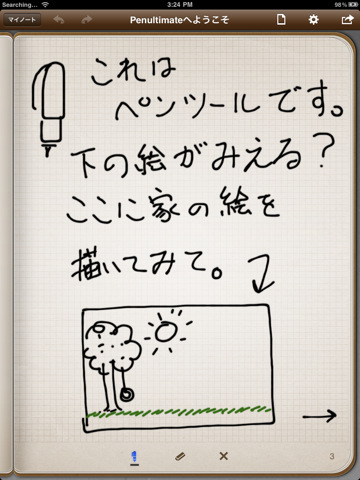 Searching...
3:24 PM
98%
マイノート
Penultimateへようこそ
これは
ペンツールです。
下の絵がみえる?
ここに家の絵を
描いてみて。
3